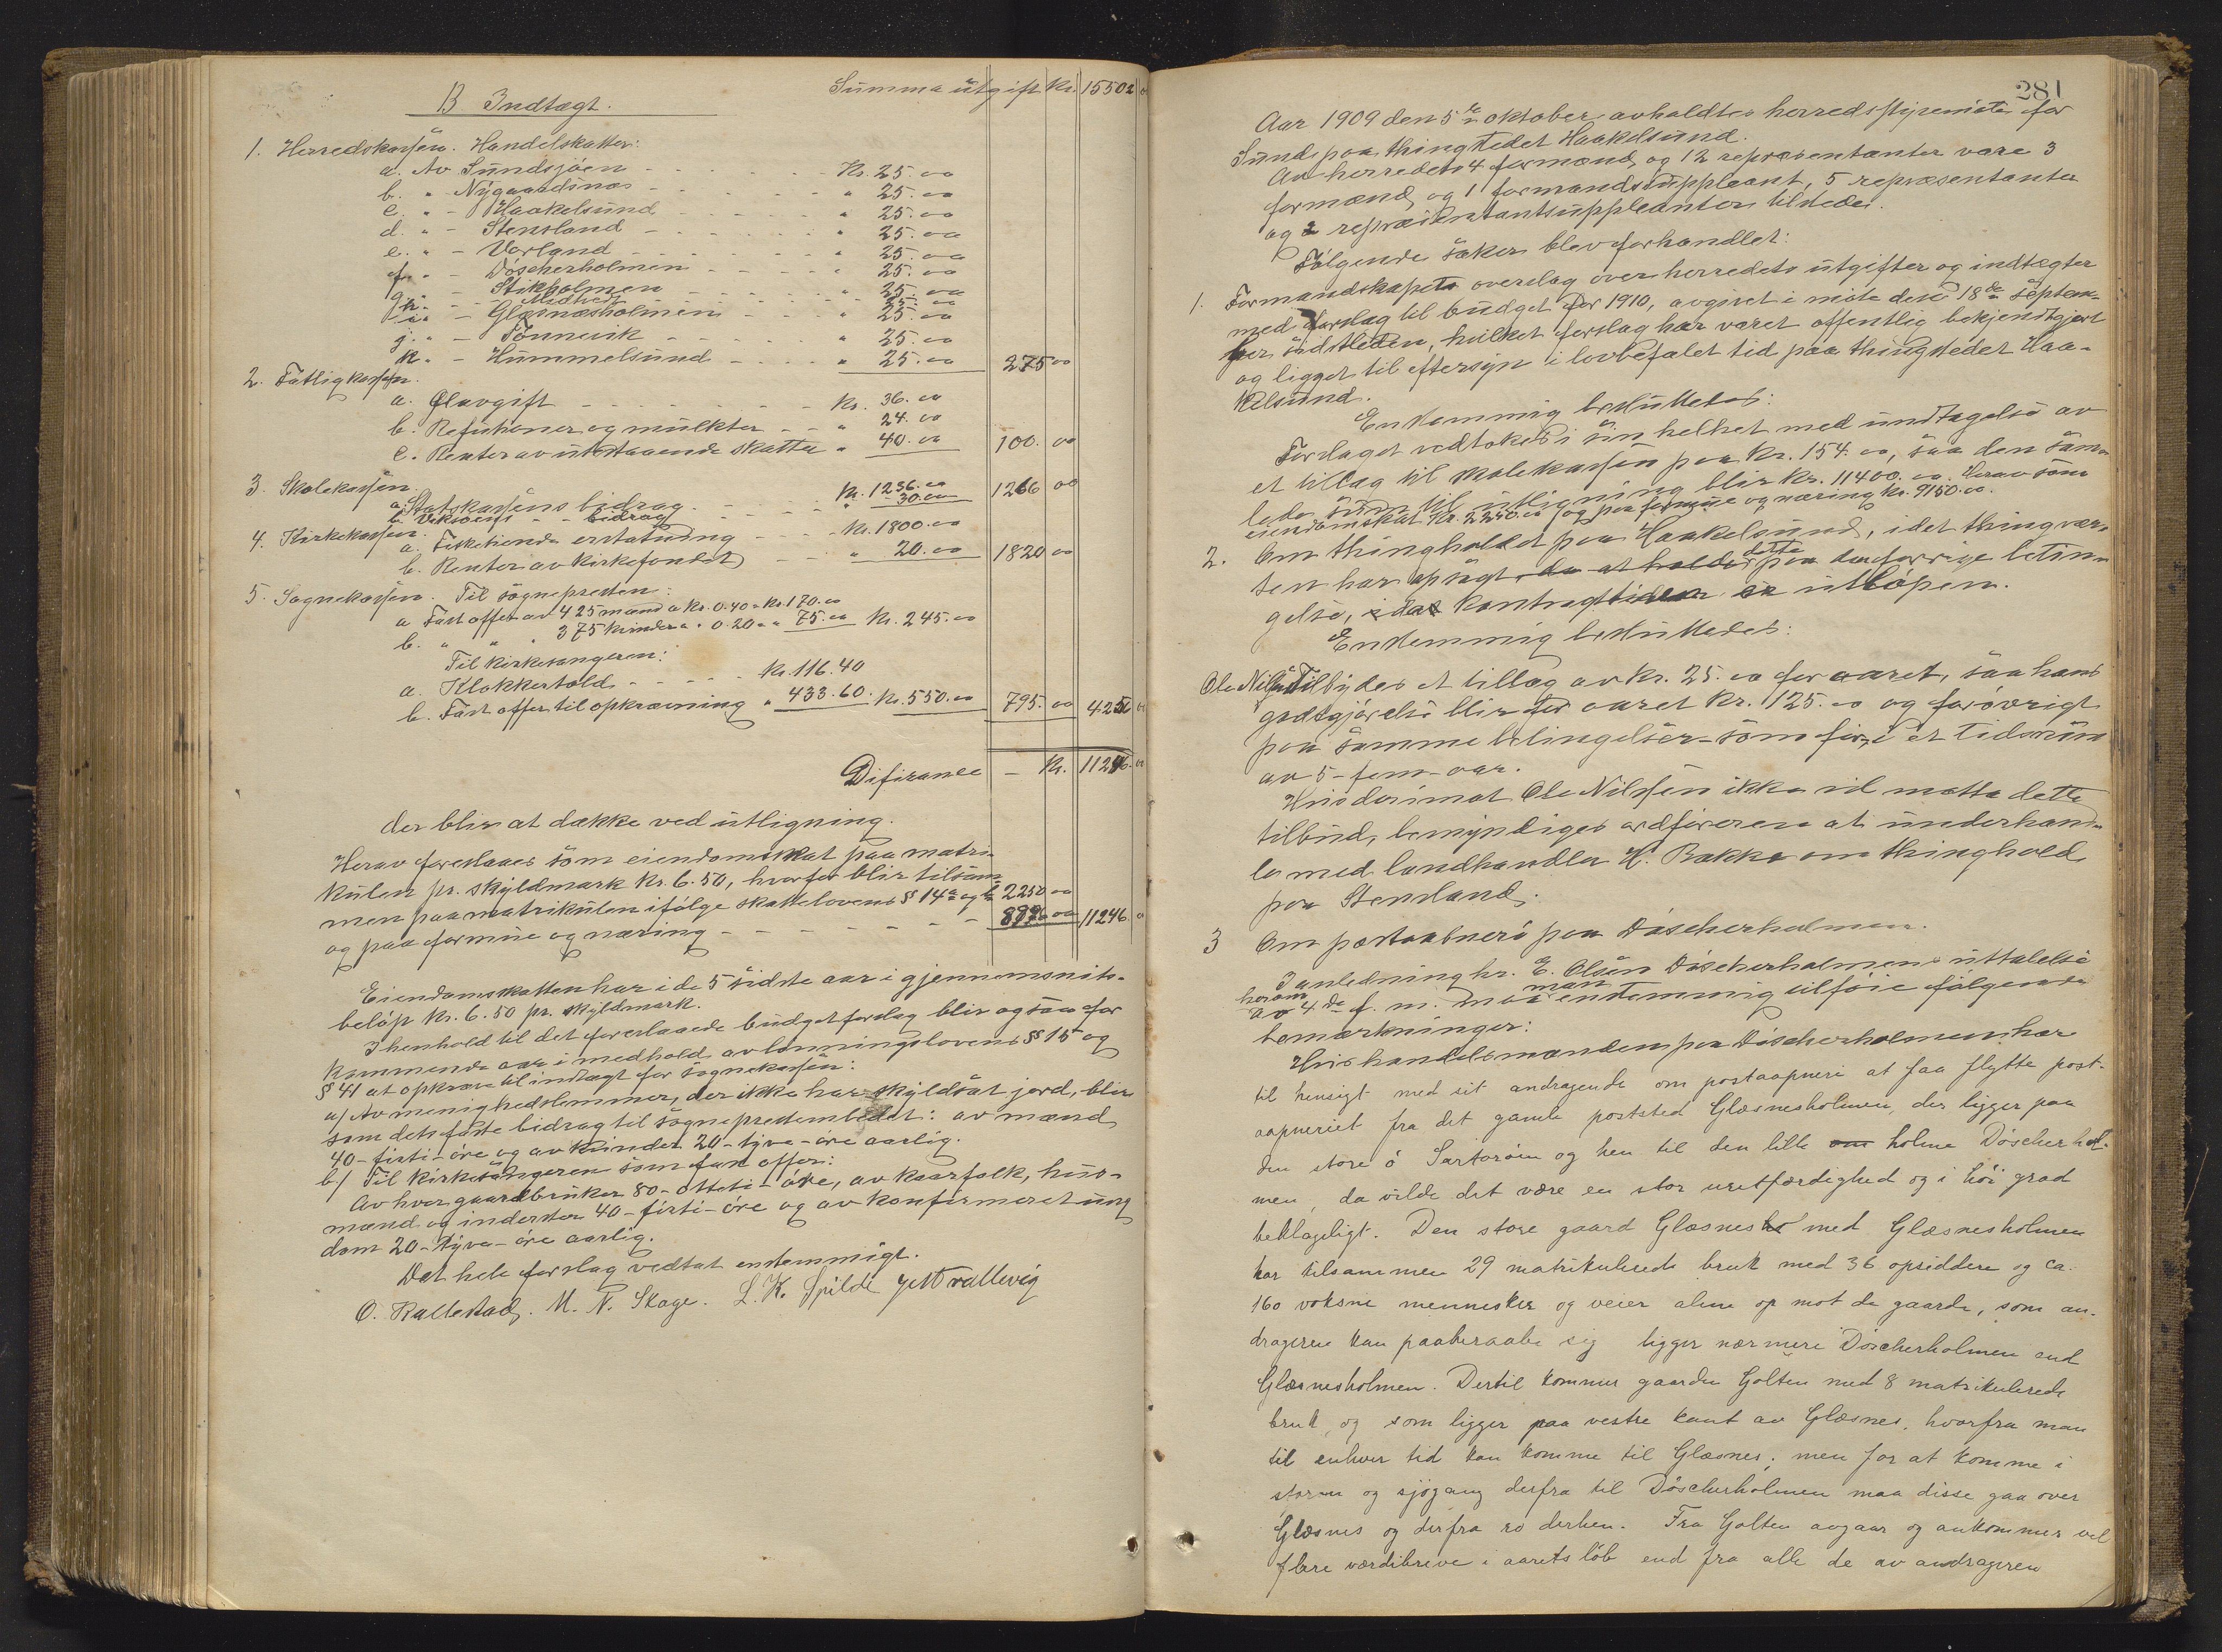 Summa utgift Kr. 15502 00
B Indtægt.
1. Herredskassen. Handelskatter:
a. Av Sundsjöen - - - Kr. 25.00
b. " - Nygaardsnæs - - - " 25.00
c. " - Haakelsund - - - " 25.00
d. " - Stensland - - - " 25.00
e. " - Vorland - - - " 25.00
f. " - Döscherholmen - - - " 25.00
g. " - Stikholmen - - - " 25.00
h. " - - - - 25.00
i. " - Glæsnæsholmen - - - " 25.00
j. " - Tönnevik - - - " 25.00
k. " - Hummelsund - - - " 25.00 275 00
2. Fattigkassen.
a. Ølavgift - - - Kr. 36.00
b. Refusioner og mulkter - - " 24.00
c. Renter av utestaaende skatter " 40.00 100.00
3. Skolekassen.
a. Statskassens bidrag - - - Kr. 1236.00
b. Veksøens - - bidrag - - - " 30.00 1266 00
4. Kirkekassen.
a. Fisketiende erstatning - - - Kr. 1800.00
b. Renter av Kirkefondet - - - " 20.00 1820 00
5. Sognekassen. Til sognepresten:
a. Fast offer av 425 mænd a Kr. 0.40 = Kr. 170.00
b. " " " 375 kvinder a " 0.20 = " 75.00 Kr. 245.00
Til Kirkesangeren:
a. Klokkertold - - - - Kr. 116.40
b. Fast offer til opkrævning " 433.60. Kr. 550.00 795.00 4256 00
Difirance - Kr. 11246.00
der blir at dække ved utligning.
Herav foreslaaes som eiendomsskat paa matri-
kulen pr. skyldmark Kr. 6.50, hvorfor blir tilsam-
men paa matrikulen ifølge skattelovens § 14 a og b 2250 00
og paa formue og næring - - - - - - - 8996 00 11246.00
Eiendomsskatten har i de 5 sidste aar i gjennemsnits-
beløp Kr. 6.50 pr. skyldmark.
I henhold til det foreslaaede budgetforslag blir ogsaa for
kommende aar i medhold av lønningslovens §§ 15 og
§ 41 at opkræve til indtægt for sognekassen:
a/ Av menighedslemmer, der ikke har skyldsat jord, blir
som dets faste bidrag til sogneprestembedet: av mænd
40-firti-øre og av kvinder 20-tyve-øre aarlig.
b/ Til kirkesangeren som fast offer:
Av hver gaardbruker 80-otteti-øre, av kaarfolk, hus-
mænd og inderster 40-firti-øre og av konfirmeret ung
dom 20-tyve-øre aarlig.
Det hele forslag vedtat enstemmigt.
O. Kallestad. M. N. Skoge. L. K. Spilde
281
Aar 1909 den 5te oktober avholdtes herredsstyremøte for
Sund paa thingstedet Haakelsund.
Av herredets 4 formænd og 12 repræsentanter vare 3
formænd og 1 formandssuppleant, 5 repræsentanter
og 2 repræsentantsuppleanter tilstede.
Følgende saker blev forhandlet:
1. Formandskapets overslag over herredets utgifter og indtægter
med forslag til budget for 1910, avgivet i møte den 18de septem-
ber sidstleden, hvilket forslag har været offentlig bekjendtgjort
og ligget til eftersyn i lovbefalet tid paa thingstedet Haa-
kelsund.
Enstemmig besluttedes:
Forslaget vedtokes i sin helhet med undtagelse av
et tillæg til skolekassen paa Kr. 154.00, saa den sam-
lede sum til utligning blir Kr. 11400.00. Herav som
eiendomskat Kr. 2250.00 og paa formue og næring Kr. 9150.00.
2. Om thingholdet paa Haakelsund, idet thingvær-
ten har opsagt at holde dette paa den forrige betin-
gelse, da kontragttiden er utløpen.
Enstemmig besluttedes:
Ole Nilsen tilbydes et tillæg av Kr. 25.00 for aaret, saa hans
godtgjørelse blir for aaret Kr. 125.00 og forøvrigt
paa samme betingelser som før, i et tidsrum
av 5-fem-aar.
Hvis derimot Ole Nilsen ikke vil motta dette
tilbud, bemyndiges ordføreren at underhand-
le med landhandler H. Bakke om thinghold
paa Stensland.
3 Om postaabneri paa Döscherholmen.
I anledning hr. E. Olsen Döscherholmens uttalelse
herom av 4de f. m. maa man enstemmig tilføie følgende
bemærkninger:
Hvis handelsmanden paa Döscherholmen har
til hensigt med sit andragende om postaapneri at faa flytte post-
aapneriet fra det gamle poststed Glæsnesholmen, der ligger paa
den store ö Sartorøen og hen til den lille holme Döscherhol-
men, da vilde det være en stor uretfærdighed og i höi grad
beklageligt. Den store gaard Glæsnes med Glæsnesholmen
har tilsammen 29 matrikulerede bruk med 36 opsiddere og ca.
160 voksne mennesker og veier alene op mot de gaarde, som an-
drageren kan paaberaabe sig ligger nærmere Döscherholmen end
Glæsnesholmen. Dertil kommer gaarden Golten med 8 matrikulerede
bruk, og som ligger paa vestre kant av Glæsnes, hvorfra man
til enhver tid kan komme til Glæsnes; men for at komme i
storm og sjøgang derfra til Döscherholmen maa disse gaa over
Glæsnes og derfra ro derhen. Fra Golten avgaar og ankommer vel
flere værdibreve i aarets løb end fra alle de av andrageren